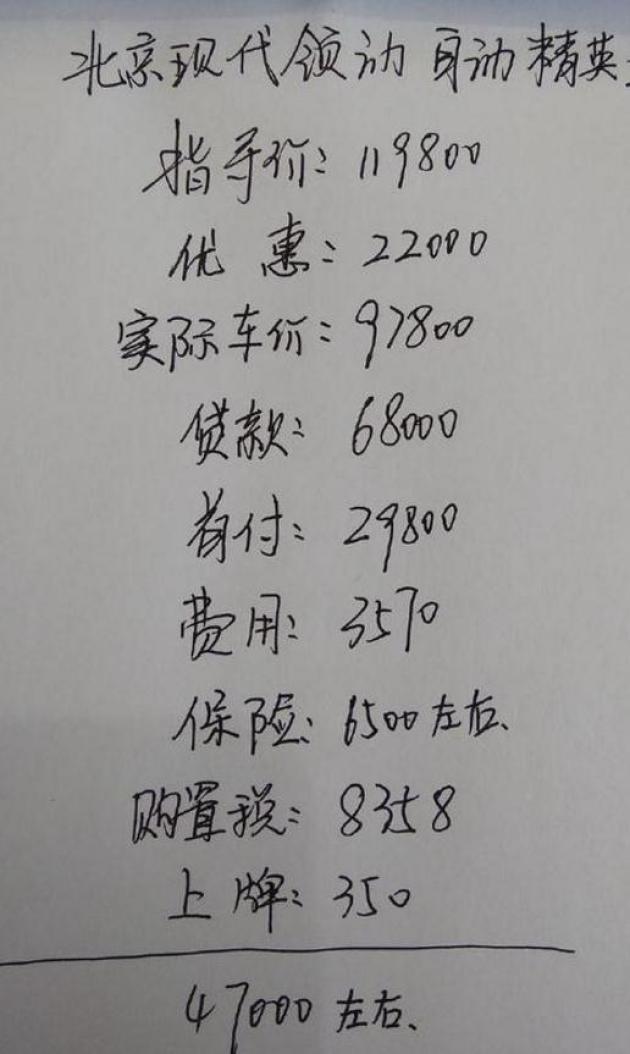 北京现代领动 自动精英
指导价：119800
优惠：22000
实际车价：97800
贷款：68000
首付：29800
费用：3570
保险：6500左右、
购置税：8358
上牌：350
47000左右、